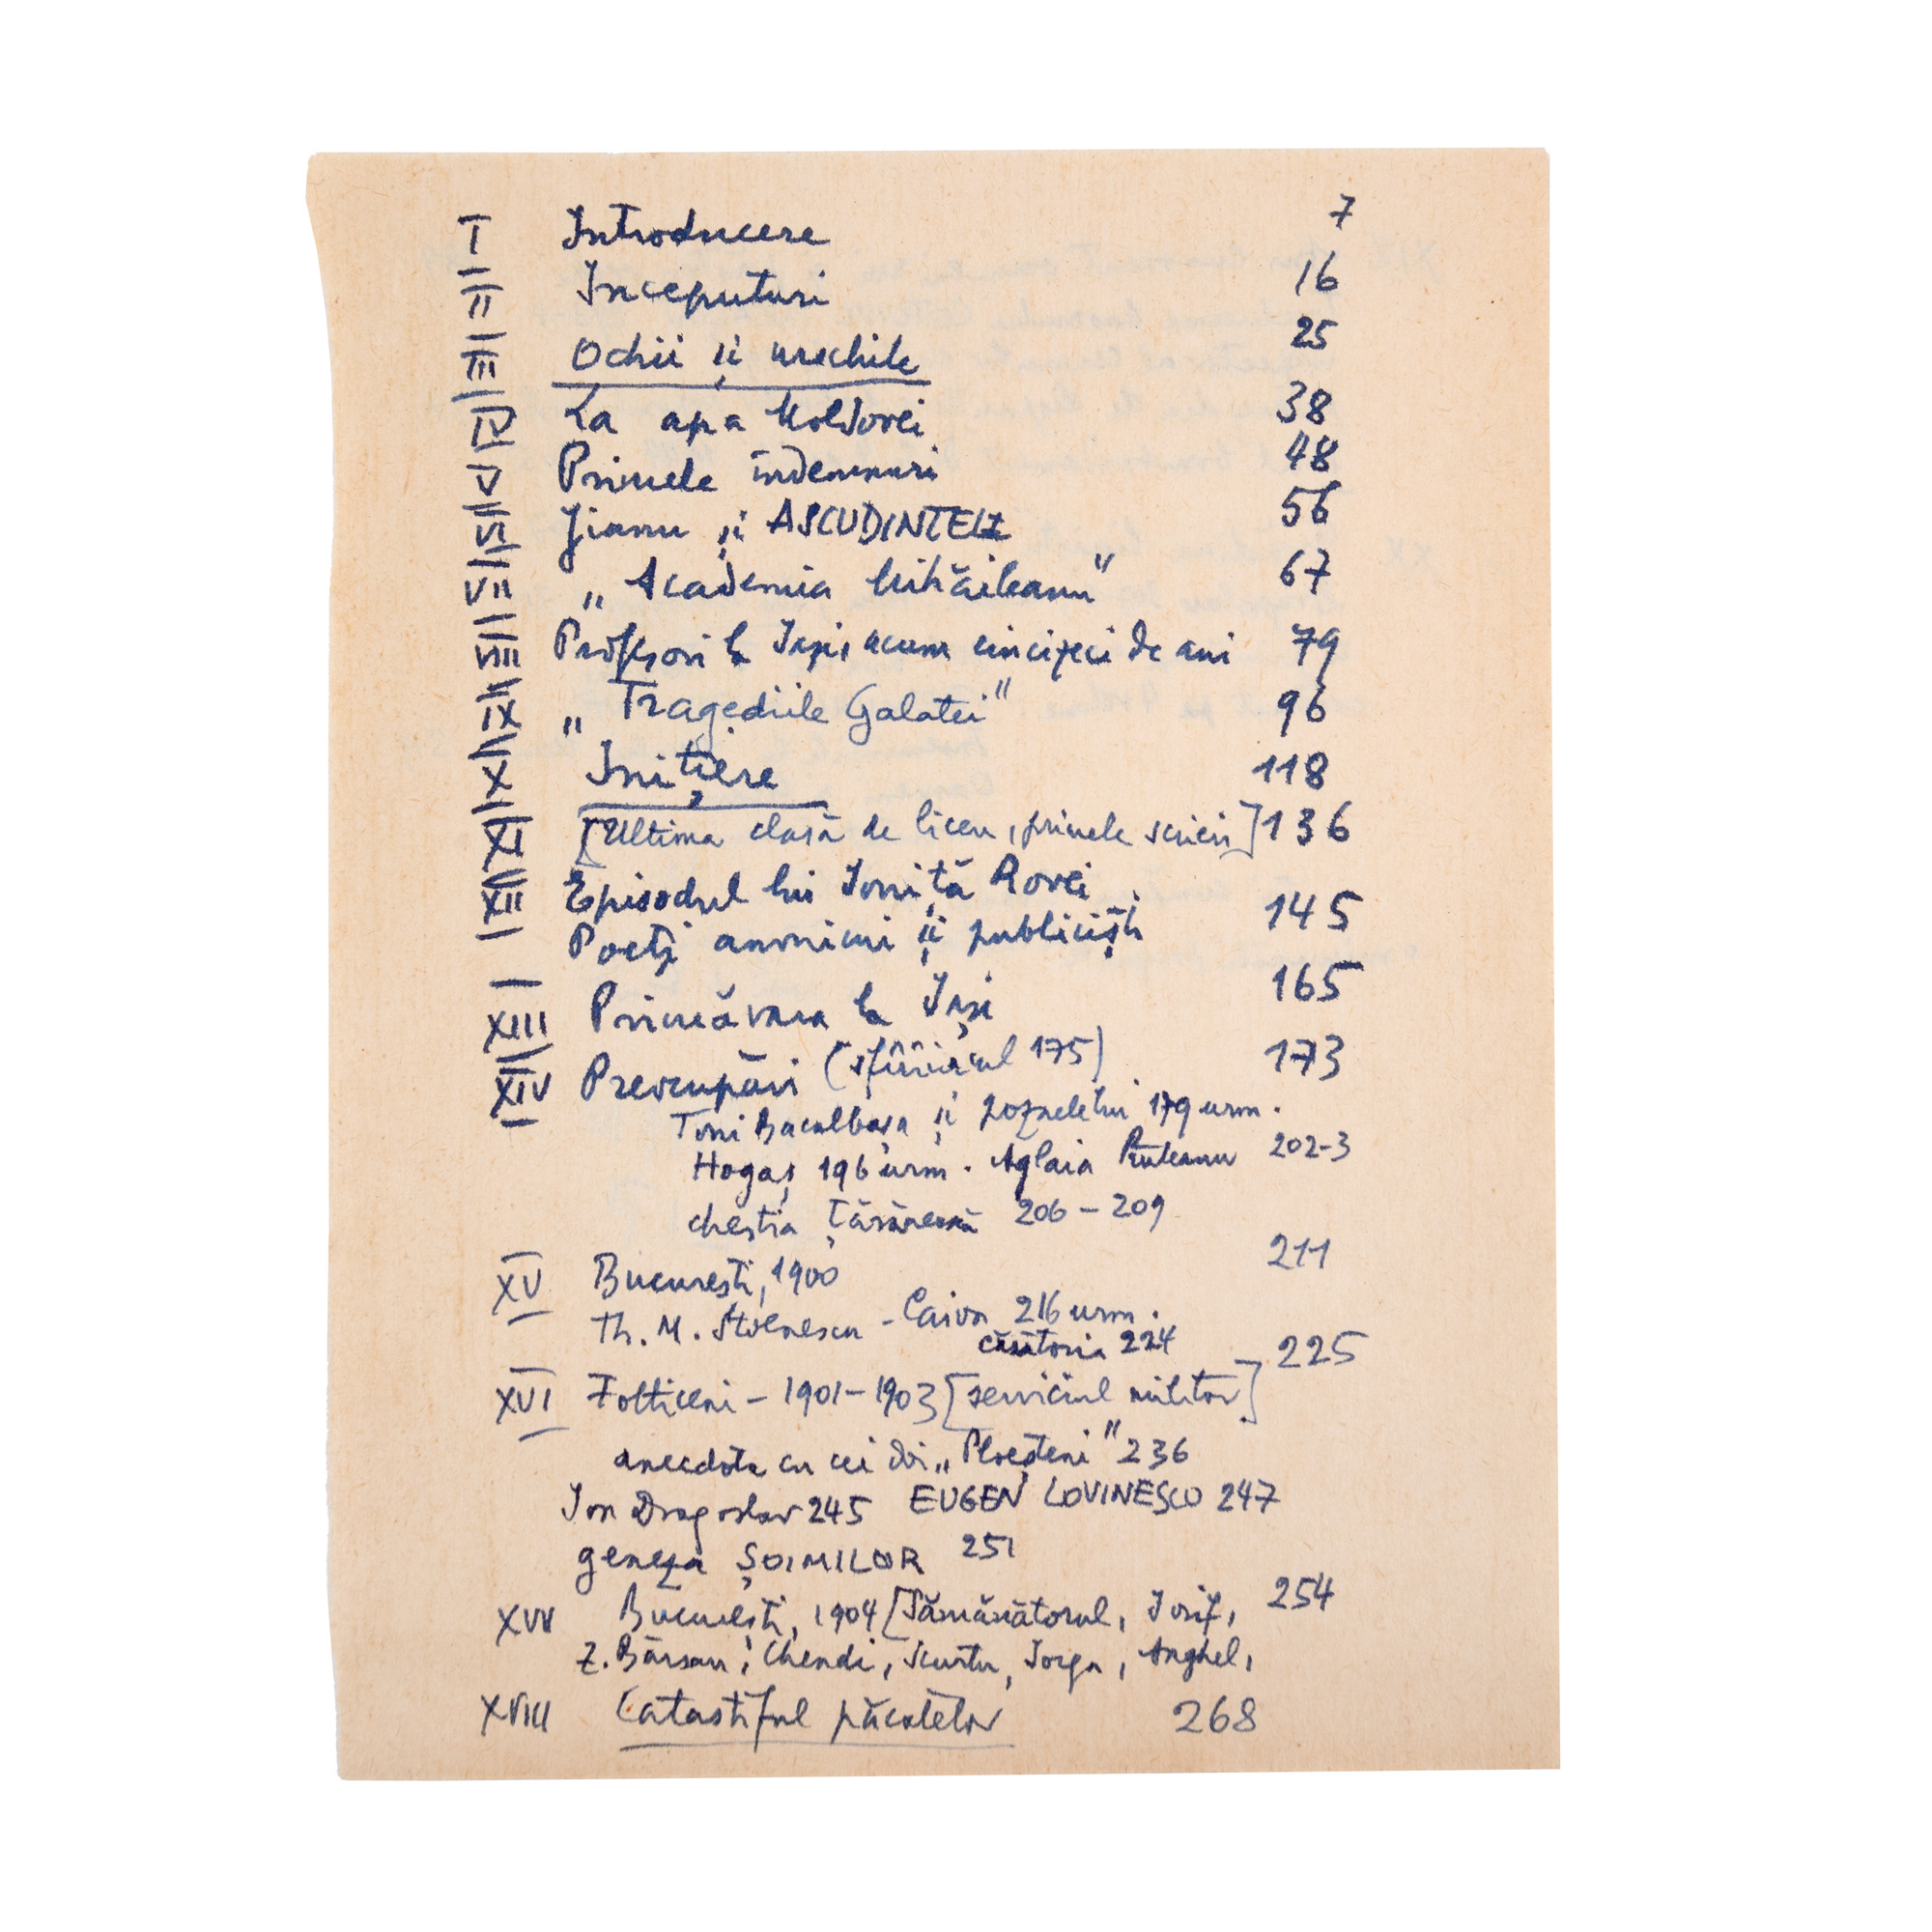 I Introducere 7
II Începuturi 16
III Ochii și urechile 25
IV La apa Moldovei 38
V Primele îndemnuri 48
VI Jianu și ASCUDINTELE 56
VII „Academia Mihăileanu" 67
VIII Profesori la Iași, acum cincizeci de ani 79
IX „Tragediile Galatei" 96
X Inițiere 118
XI [Ultima clasă de liceu, primele scrieri] 136
XII Episodul lui Ioniță Rovei
Poeți anonimi și publiciști 145
XIII Primăvara la Iași 165
XIV Preocupări (sfârâiacul 175) 173
Toni Bacalbașa și poznele lui 179 urm.
Hogaș 196 urm. Aglaia Pruteanu 202-3
chestia țărănească 206-209
XV București, 1900 211
Th. M. Stoenescu - Caion 216 urm.
căsătoria 224
XVI Folticeni - 1901-1903 [serviciul militar] 225
anecdota cu cei doi „Ploeșteni" 236
Ion Dragoslav 245 EUGEN LOVINESCO 247
geneza ȘOIMILOR 251
XVII București, 1904 [Sămănătorul, Iosif, 254
Z. Bârsan, Chendi, Scurtu, Iorga, Anghel,
XVIII Catastiful păcatelor 268